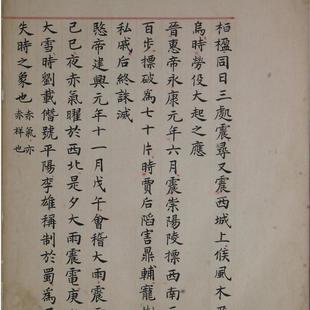 柏楹同日三處震尋又震西城上候風木飛
烏時勞役大起之應
晉惠帝永康元年六月震崇陽陵標西南五
百步標破為七十片時賈后陷害鼎輔寵樹
私戚后終誅滅
愍帝建興元年十一月戊午會稽大雨震電
己巳夜赤氣曜於西北是夕大雨震電庚午
大雪時劉載僭號平陽李雄稱制於蜀為
失時之象也赤氣亦赤祥也